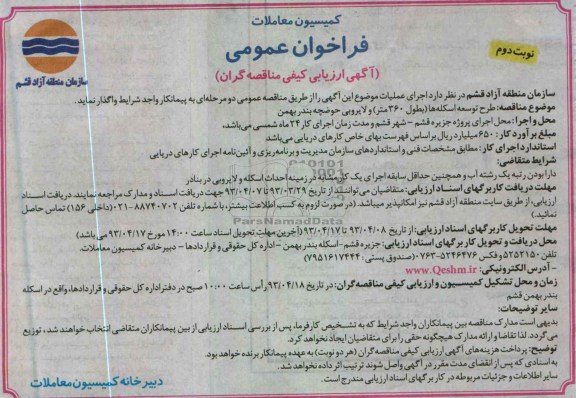 کمیسیون معاملات
فراخوان عمومی
نوبت دوم
(آگهی ارزیابی کیفی مناقصه گران)
سازمان منطقه آزاد قشم
سازمان منطقه آزاد قشم در نظر دارد اجرای عملیات موضوع این آگهی را از طریق مناقصه عمومی دو مرحله‌ای به پیمانکار واجد شرایط واگذار نماید.
موضوع مناقصه: طرح توسعه اسکله‌ها (بطول ۳۶۰متر) و لایروبی حوضچه بندر بهمن
محل و اجرا: محل اجرای پروژه جزیره قشم - شهر قشم و مدت زمان اجرای کار ۲۴ ماه شمسی می‌باشد.
مبلغ برآورد کار: ۶۵۰ میلیارد ریال براساس فهرست بهای خاص کارهای دریایی می‌باشد
استاندارد اجرای کار: مطابق مشخصات فنی و استانداردهای سازمان مدیریت و برنامه‌ریزی و آئین‌نامه اجرای کارهای دریایی
شرایط متقاضی:
دارا بودن رتبه یک رشته آب و همچنین حداقل سابقه اجرای یک کار مشابه در زمینه احداث اسکله و لایروبی در بنادر
مهلت دریافت کاربرگهای اسناد ارزیابی: متقاضیان می‌توانند از تاریخ ۹۳/۰۳/۲۹ تا ۹۳/۰۴/۰۷ جهت دریافت اسناد و مدارک مراجعه نمایند. دریافت اسناد
ارزیابی، از طریق سایت منطقه آزاد قشم نیز امکانپذیر میباشد. (در صورت لزوم به کسب اطلاعات بیشتر، با شماره تلفن ۸۸۷۴۰۷۰۲-۰۲۱ (داخلی ۱۵۶) تماس حاصل
نمائید.)
مهلت تحویل کاربرگهای اسناد ارزیابی: از تاریخ ۹۳/۰۴/۰۸ تا ۹۳/۰۴/۱۷ (آخرین مهلت تحویل اسناد ساعت ۱۴:۰۰ مورخ ۹۳/۰۴/۱۷ می باشد)
محل دریافت و تحویل کاربرگهای اسناد ارزیابی: جزیره قشم - اسکله بندر بهمن - اداره کل حقوقی و قراردادها - دبیرخانه کمیسیون معاملات.
تلفن ۵۲۵۲۱۵۰ و فکس ۵۲۴۶۴۷۶-۰۷۶۳ (صندوق پستی: ۷۹۵۱۶۱۷۴۴۴)
- آدرس الکترونیکی: www.Qeshm.ir
زمان و محل تشکیل کمیسیون و ارزیابی کیفی مناقصه‌گران: در تاریخ ۹۳/۰۴/۱۸ رأس ساعت ۱۰:۰۰ صبح در دفتر اداره کل حقوقی و قراردادها، واقع در اسکله
بندر بهمن قشم
سایر توضیحات:
بدیهی است مدارک مناقصه بین پیمانکاران واجد شرایط که به تشخیص کارفرما، پس از بررسی اسناد ارزیابی از بین پیمانکاران متقاضی انتخاب خواهند شد، توزیع
می گردد. لذا تقاضا و ارائه مدارک هیچگونه حقی را برای متقاضیان ایجاد نخواهد کرد.
توضیح: پرداخت هزینه‌های آگهی ارزیابی کیفی مناقصه گران (هر دو نوبت) به عهده پیمانکار برنده خواهد بود.
به اسنادی که پس از انقضای مدت مقرر در آگهی واصل شوند ترتیب اثر داده نخواهد شد.
سایر اطلاعات و جزئیات مربوطه در کاربرگهای اسناد ارزیابی مندرج است.
دبیرخانه کمیسیون معاملات
ParsNamadData